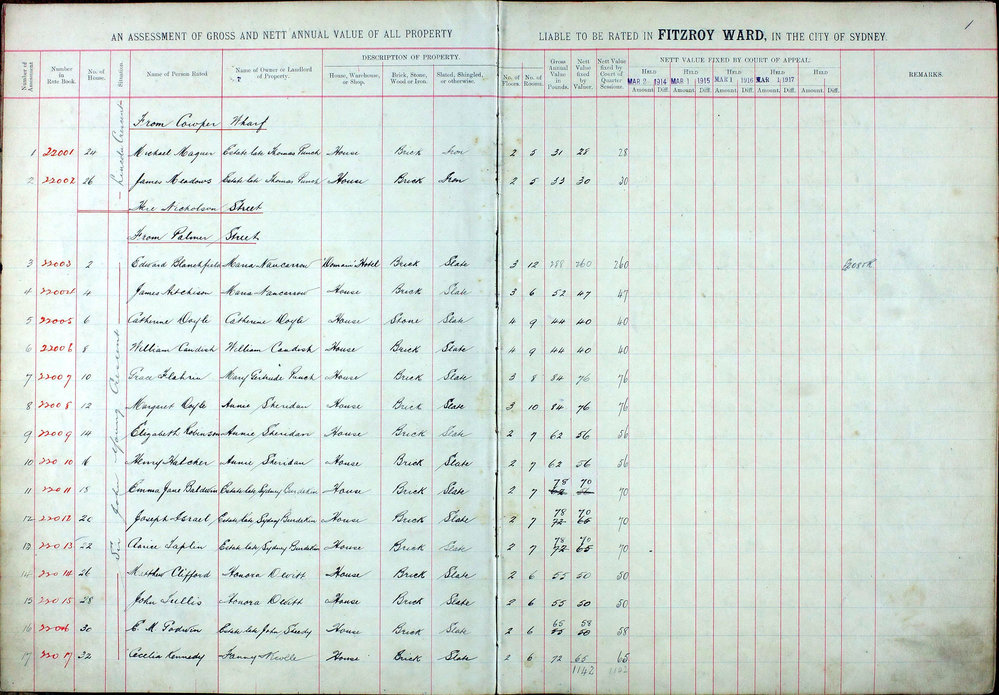 1
AN ASSESSMENT OF GROSS AND NETT ANNUAL VALUE OF ALL PROPERTY LIABLE TO BE RATED IN FITZROY WARD, IN THE CITY OF SYDNEY.
Number of Assessment Number in Rate Book. No. of House. Situation Name of Person Rated Name of Owner or Landlord of Property. DESCRIPTION OF PROPERTY. House, Warehouse, or Shop. Brick, Stone, Wood or Iron. Slated, Shingled, or otherwise. No. of Floors. No. of Rooms. Gross Annual Value in Pounds. Nett Value fixed by Valuer. Nett Value fixed by Court of Quarter Sessions. NETT VALUE FIXED BY COURT OF APPEAL: REMARKS.
HELD MAR 2 1914 HELD MAR 1 1915 HELD MAR 1 1916 HELD MAR 1 1917 HELD
Amount. Diff. Amount. Diff. Amount. Diff. Amount. Diff. Amount. Diff.
Lincoln Crescent
From Cowper Wharf
1 22001 24 Michael Maguer Estate late Thomas Punch House Brick Iron 2 5 31 28 28
2 22002 26 James Meadows Estate late Thomas Punch House Brick Iron 2 5 33 30 30
Here Nicholson Street
From Palmer Street
Sir John Young Crescent
3 22003 2 Edward Blanchfield Maria Nancarrow Hotel Brick Slate 3 12 288 260 260
4 22004 4 James Aitchison Maria Nancarrow House Brick Slate 3 6 52 47 47
5 22005 6 Catherine Doyle Catherine Doyle House Stone Slate 4 9 44 40 40
6 22006 8 William Candish William Candish House Brick Slate 4 9 44 40 40
7 22007 10 Grace Mary Gertrude Punch House Brick Slate 3 8 84 76 76
8 22008 12 Margaret Doyle Annie Sheridan House Brick Slate 3 10 84 76 76
9 22009 14 Elizabeth Robinson Annie Sheridan House Brick Slate 2 7 62 56 56
10 22010 16 Henry Hatcher Annie Sheridan House Brick Slate 2 7 62 56 56
11 22011 18 Emma Jane Baldwin Estate late Sydney Burdekin House Brick Slate 2 7 78 62 70 56 70
12 22012 20 Joseph Israel Estate late Sydney Burdekin House Brick Slate 2 7 78 72 70 65 70
13 22013 22 Taplin Estate late Sydney Burdekin House Brick Slate 2 7 78 72 70 65 70
14 22014 26 Matthew Clifford Honora Devitt House Brick Slate 2 6 55 50 50
15 22015 28 John Tullis Honora Devitt House Brick Slate 2 6 55 50 50
16 22016 30 E. M. Godwin Estate late John Sheedy House Brick Slate 2 6 65 55 58 50 58
17 22017 32 Cecelia Kennedy Fanny Neville House Brick Slate 2 6 72 65 65
1142 1142